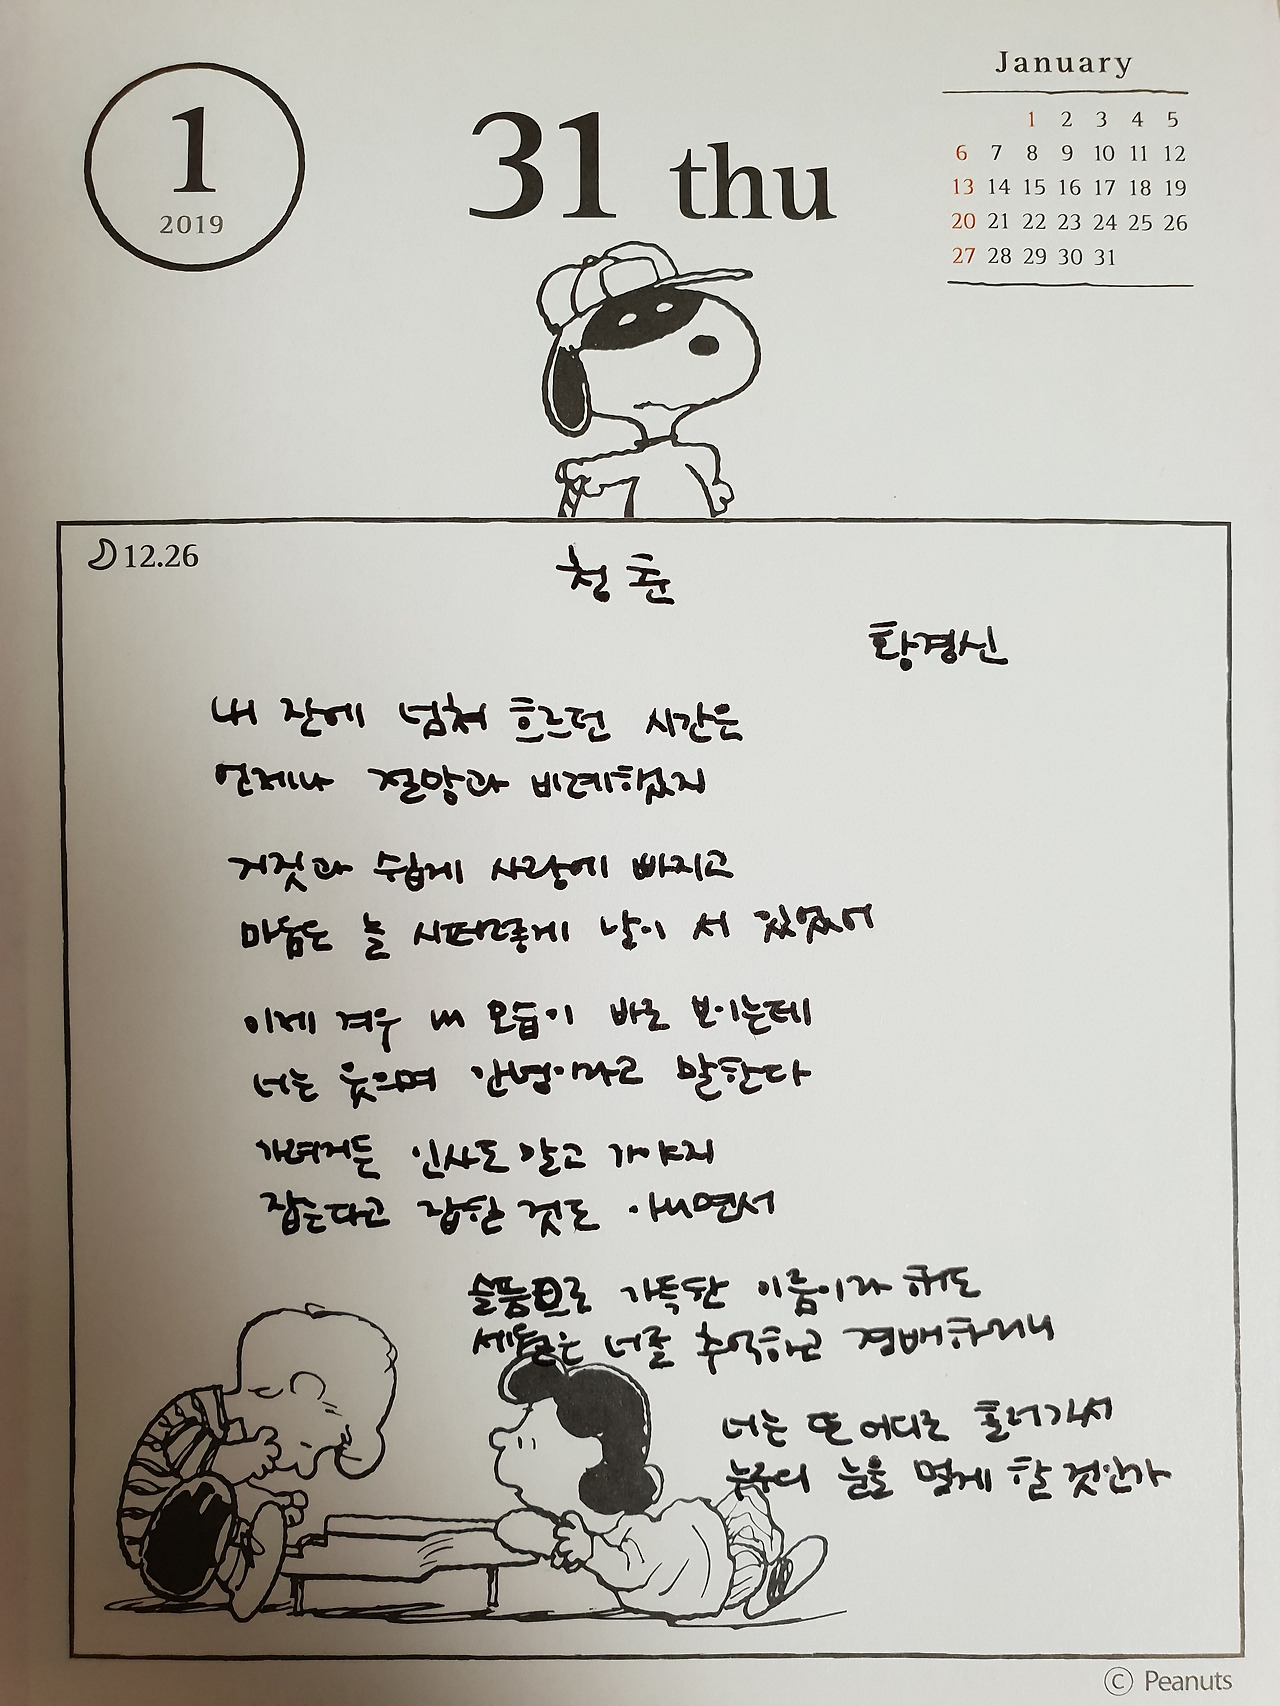 1
2019
31 thu
January
1 2 3 4 5
6 7 8 9 10 11 12
13 14 15 16 17 18 19
20 21 22 23 24 25 26
27 28 29 30 31
12.26
청춘
황경신
내 잔에 넘쳐 흐르던 시간은
언제나 절망과 비례했지
거짓과 쉽게 사랑에 빠지고
마음은 늘 시퍼렇게 날이 서 있었어
이제 겨우 내 모습이 바로 보이는데
너는 웃으며 안녕이라고 말한다
가려거든 인사도 말고 가야지
잡는다고 잡힐 것도 아니면서
슬픔으로 가득한 이름이라 해도
세월은 너를 추억하고 경배하리니
너는 또 어디로 흘러가서
누구의 눈을 멀게 할 것인가
© Peanuts